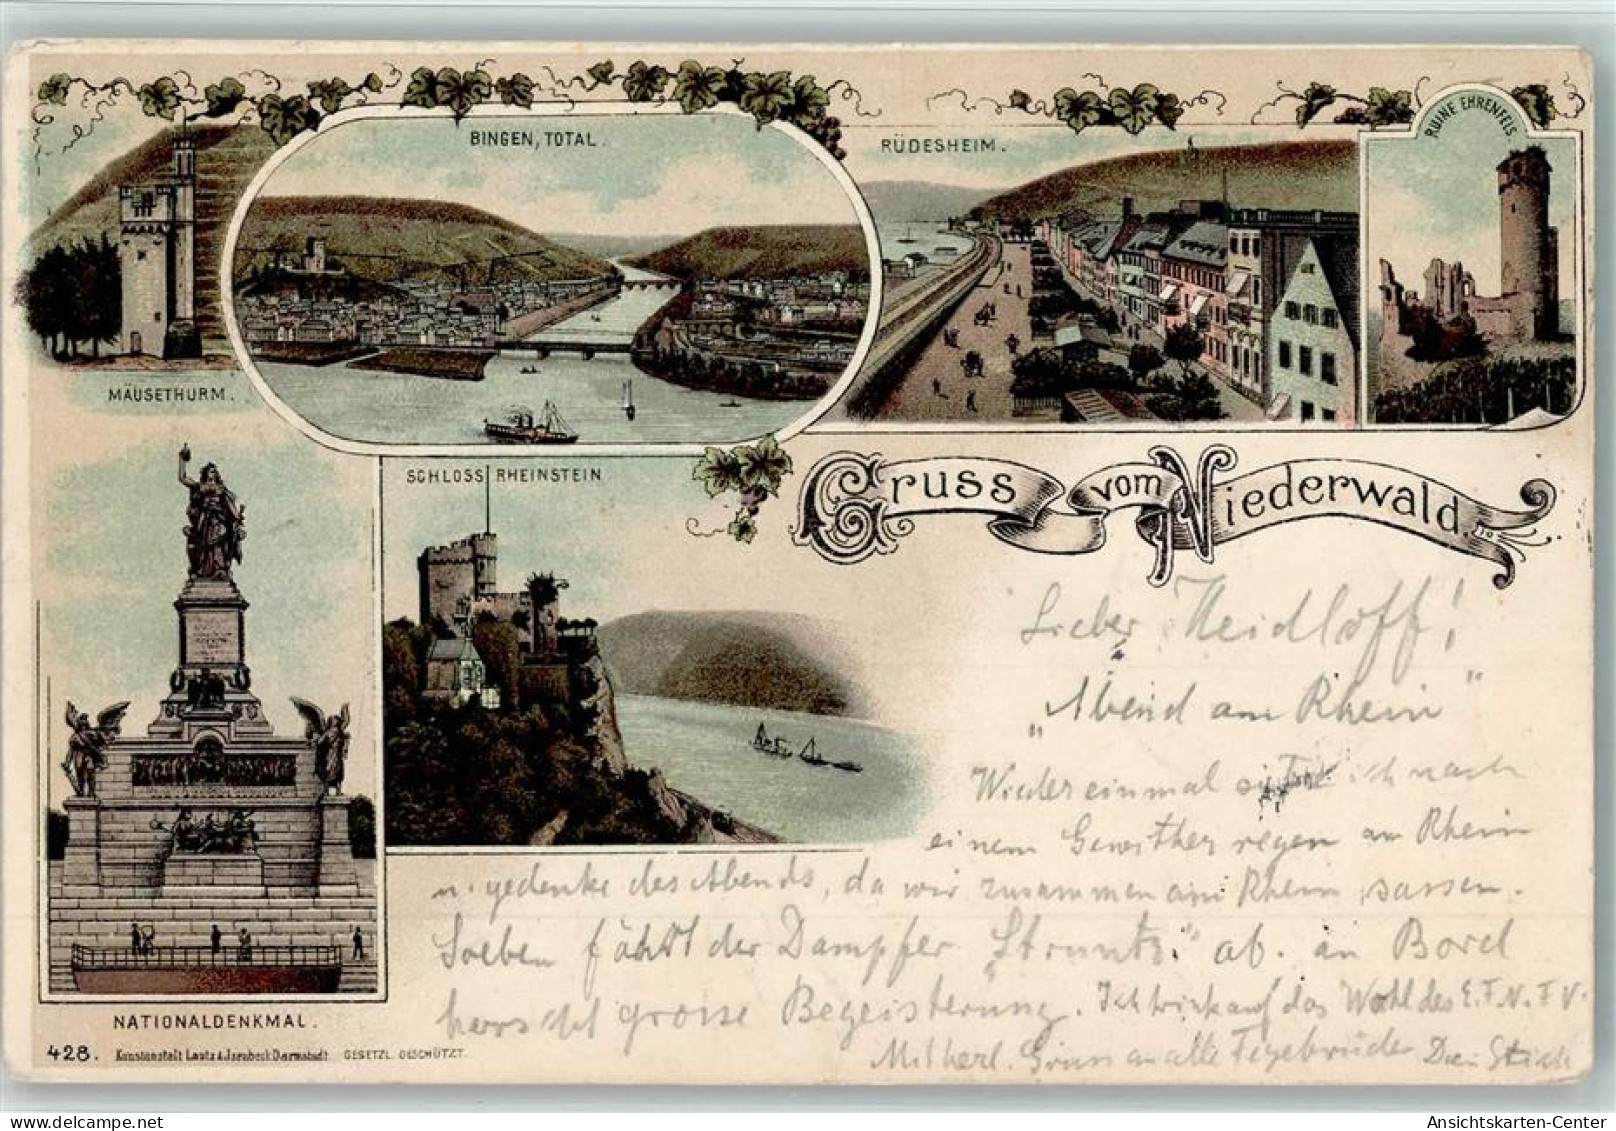 BINGEN, TOTAL.
RÜDESHEIM.
RUINE EHRENFELS
MÄUSETHURM.
SCHLOSS RHEINSTEIN
Gruss vom Niederwald.
Lieber Heidloff!
„Abend am Rhein"
Wieder einmal ich nach
einem Gewitherregen am Rhein
u. gedenke des Abends, da wir zusammen am Rhein sassen.
Soeben fährt der Dampfer „Struntz" ab. an Bord
herrscht grosse Begeisterung. Ich trink auf das Wohl des E.F.N.F.V.
Mit herzl. Gruss an alle Fegebrüder Dein
NATIONALDENKMAL.
428. Kunstanstalt Lautz & Jsenbeck Darmstadt. GESETZL. GESCHÜTZT.
Ansichtskarten-Center